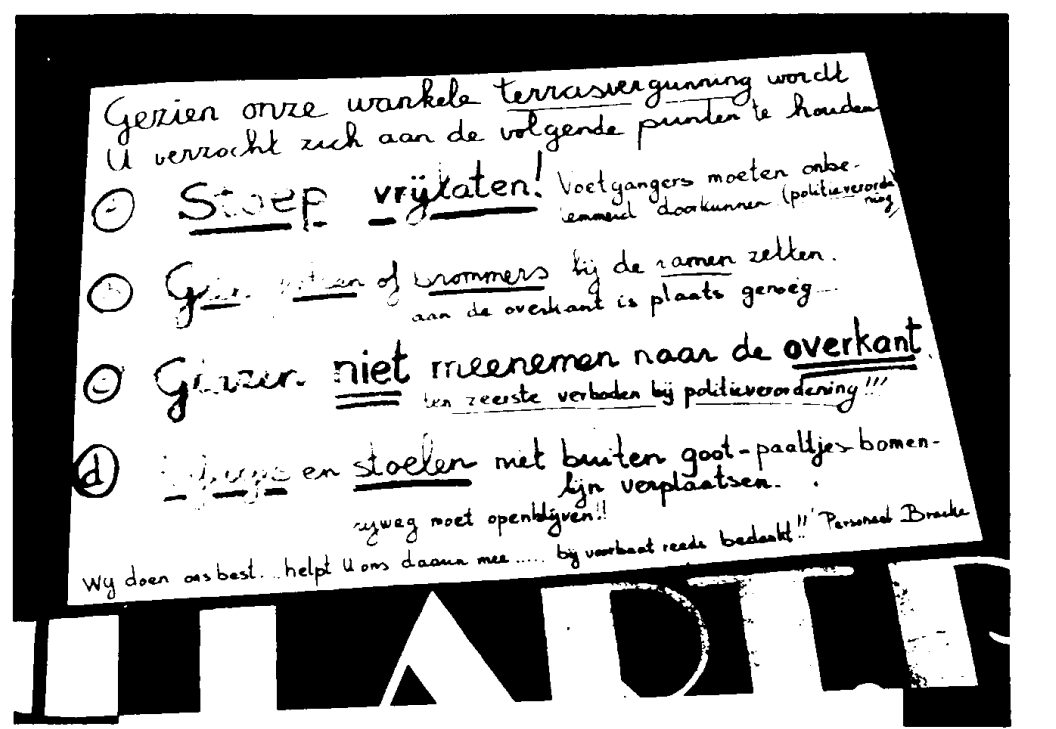 Gezien onze wankele terrasvergunning wordt
U verzocht zich aan de volgende punten te houden
Stoep vrijlaten! Voetgangers moeten onbe-
lemmerd doorkunnen (politieverorde
ning)
Geen fietsen of brommers bij de ramen zetten.
aan de overkant is plaats genoeg....
Glazen niet meenemen naar de overkant.
ten zeerste verboden bij politieverordening!!!
d en stoelen niet buiten goot-paaltjes-bomen-
lijn verplaatsen.
rijweg moet openblijven!!
Wij doen ons best... helpt U ons daarin mee ..... bij voorbaat reeds bedankt!! Personeel Bracke